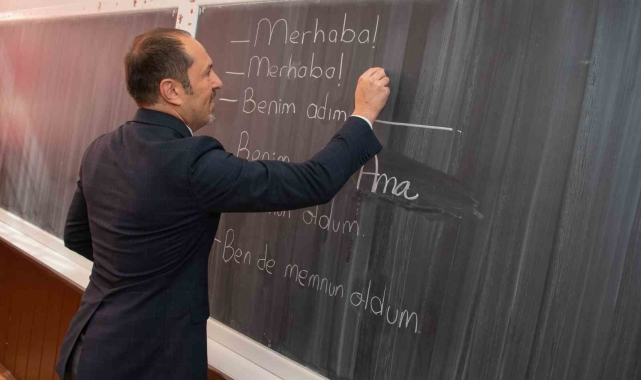 - Merhaba!
- Merhaba!
- Benim adım
Benim
Ama
oldum.
- Ben de memnun oldum.